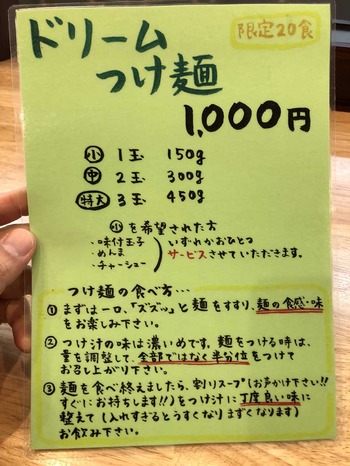 ドリーム
限定20食
つけ麺
1,000円
小 1玉 150g
中 2玉 300g
特大 3玉 450g
小を希望された方
・味付玉子
・めんま
・チャーシュー
いずれかおひとつ
サービスさせていただきます。
つけ麺の食べ方…
① まずは一口、「ズズッ」と麺をすすり、麺の食感・味
をお楽しみ下さい。
② つけ汁の味は濃いめです。麺をつける時は、
量を調整して、全部ではなく半分位をつけて
お召し上がり下さい。
③ 麺を食べ終えましたら、割りスープ(お声かけ下さい!!
すぐにお持ちします!!)をつけ汁に丁度良い味に
整えて(入れすぎるとうすくなりまずくなります)
お飲み下さい。